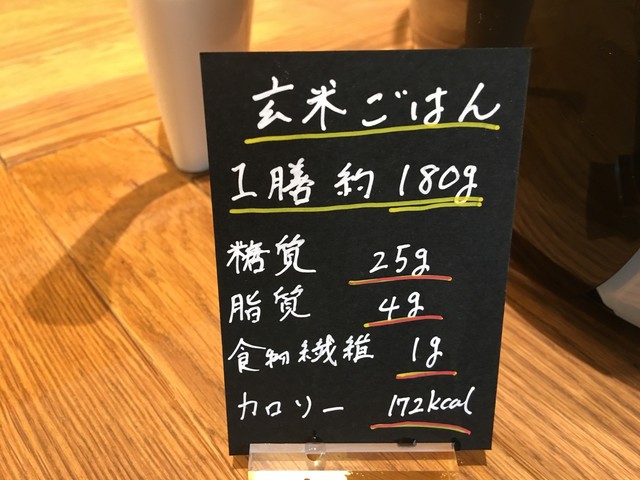 玄米ごはん
1膳 約180g
糖質 25g
脂質 4g
食物繊維 1g
カロリー 172kcal